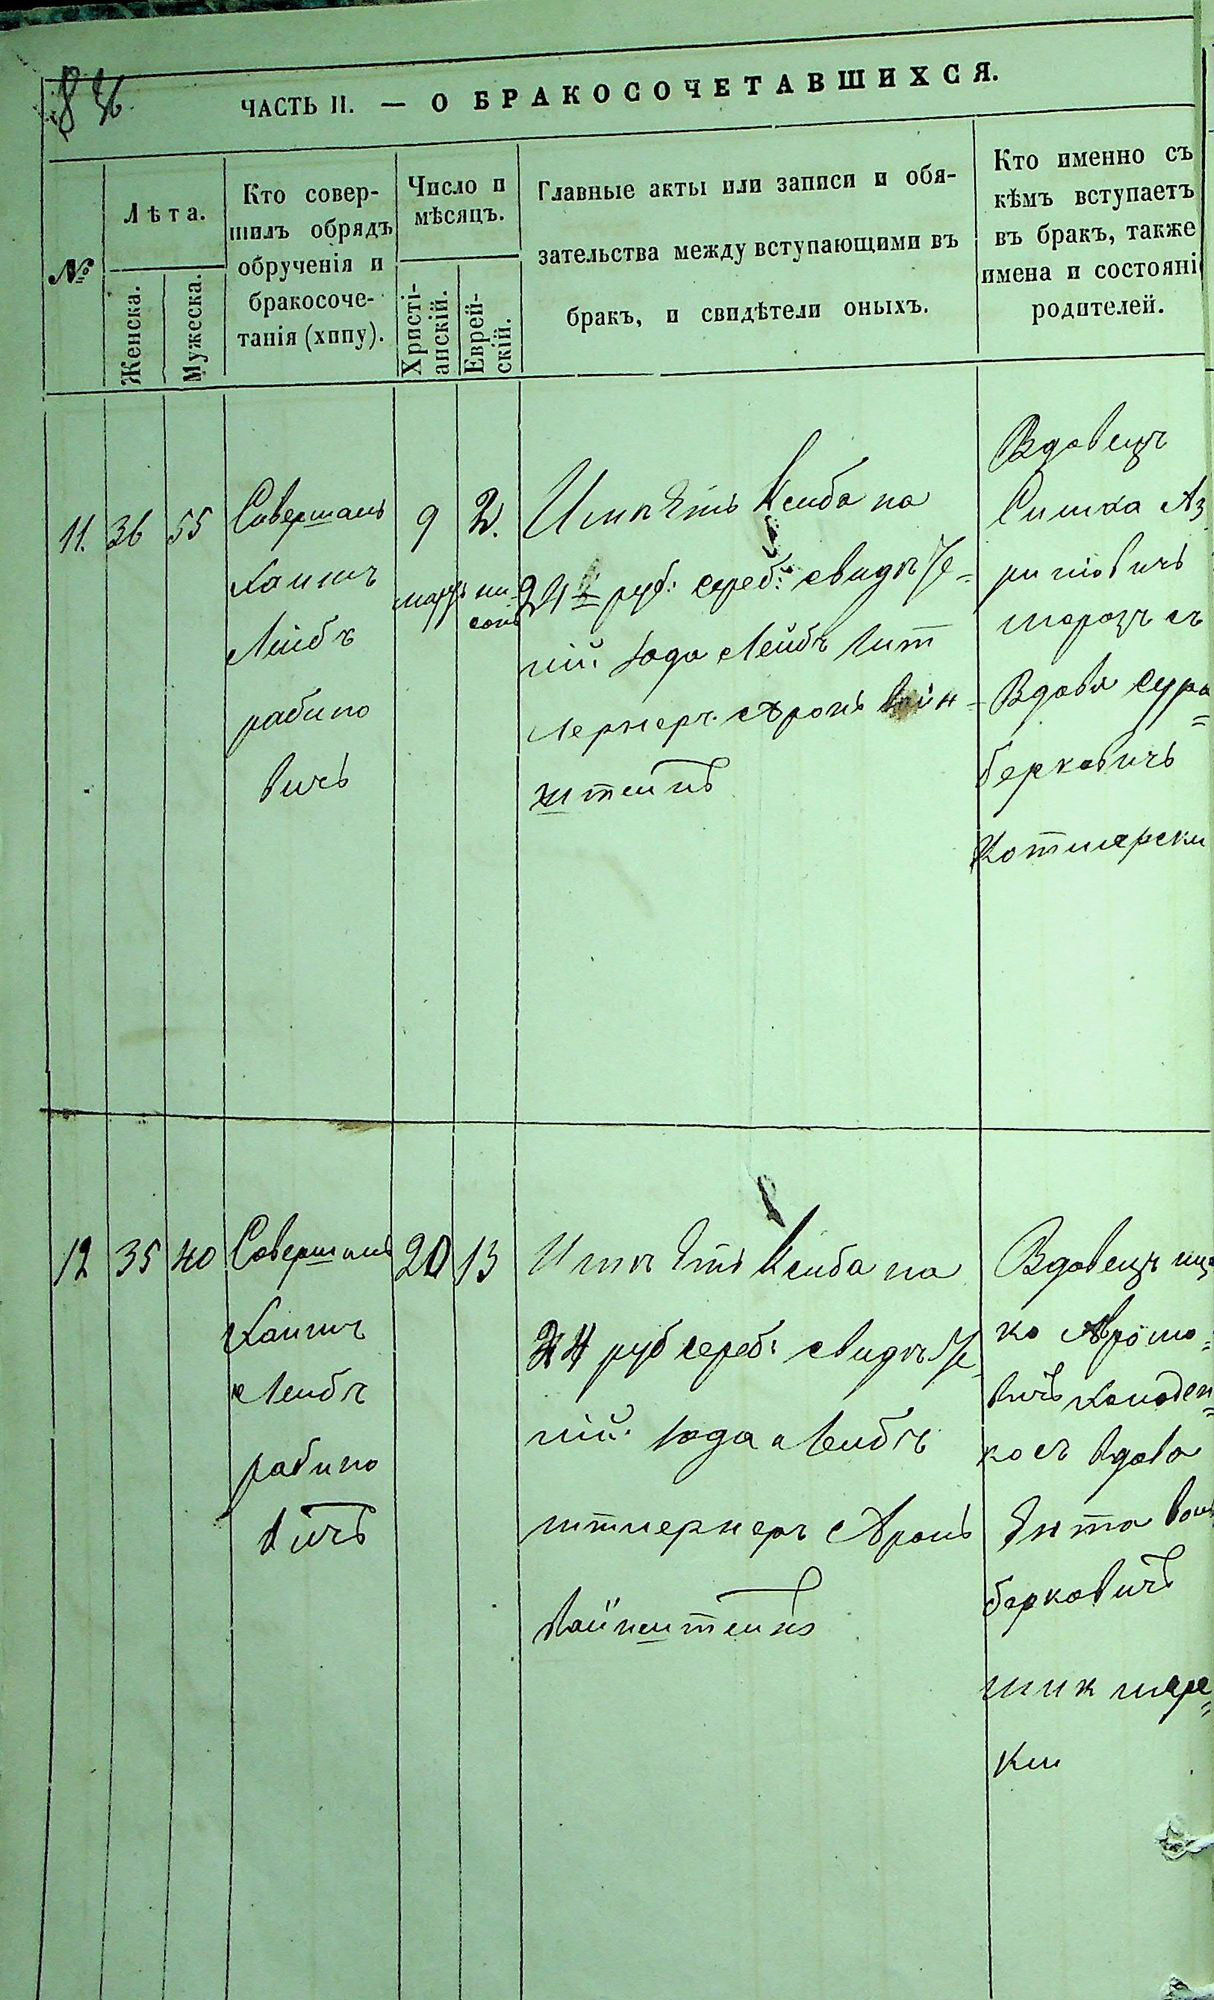 ЧАСТЬ II. — О БРАКОСОЧЕТАВШИХСЯ.
№
Лѣта.
Женска.
Мужеска.
Кто совер-
шилъ обрядъ
обрученія и
бракосоче-
танія (хппу).
Число и
мѣсяцъ.
Христі-
анскій.
Еврей-
скій.
Главные акты или записи и обя-
зательства между вступающими въ
бракъ, и свидѣтели оныхъ.
Кто именно съ
кѣмъ вступаетъ
въ бракъ, также
имена и состояні
родителей.
11.
36
55
Совершалъ
Лейбъ
рабино
вичъ
9
2.
ни-
сонъ
на
24 руб: сереб: свидѣте-
лій: Лейбъ Шт
лернеръ Аронъ Вайн-
штеинъ
Вдовецъ
Симха Аз
рилiовичъ
морозъ съ
Вдова Сура=
берковичъ
Котлярски
12
35
40
Совершалъ
Лейбъ
рабино
вичъ
20
13
на
24 руб сереб: свидѣте
лій: Лейбъ
штлернеръ Аронъ
Вайнштеинъ
Вдовецъ иц
ко Аромо=
вичъ Колоден=
ко съ вдова
Ента
берковичъ
шкляре=
ки